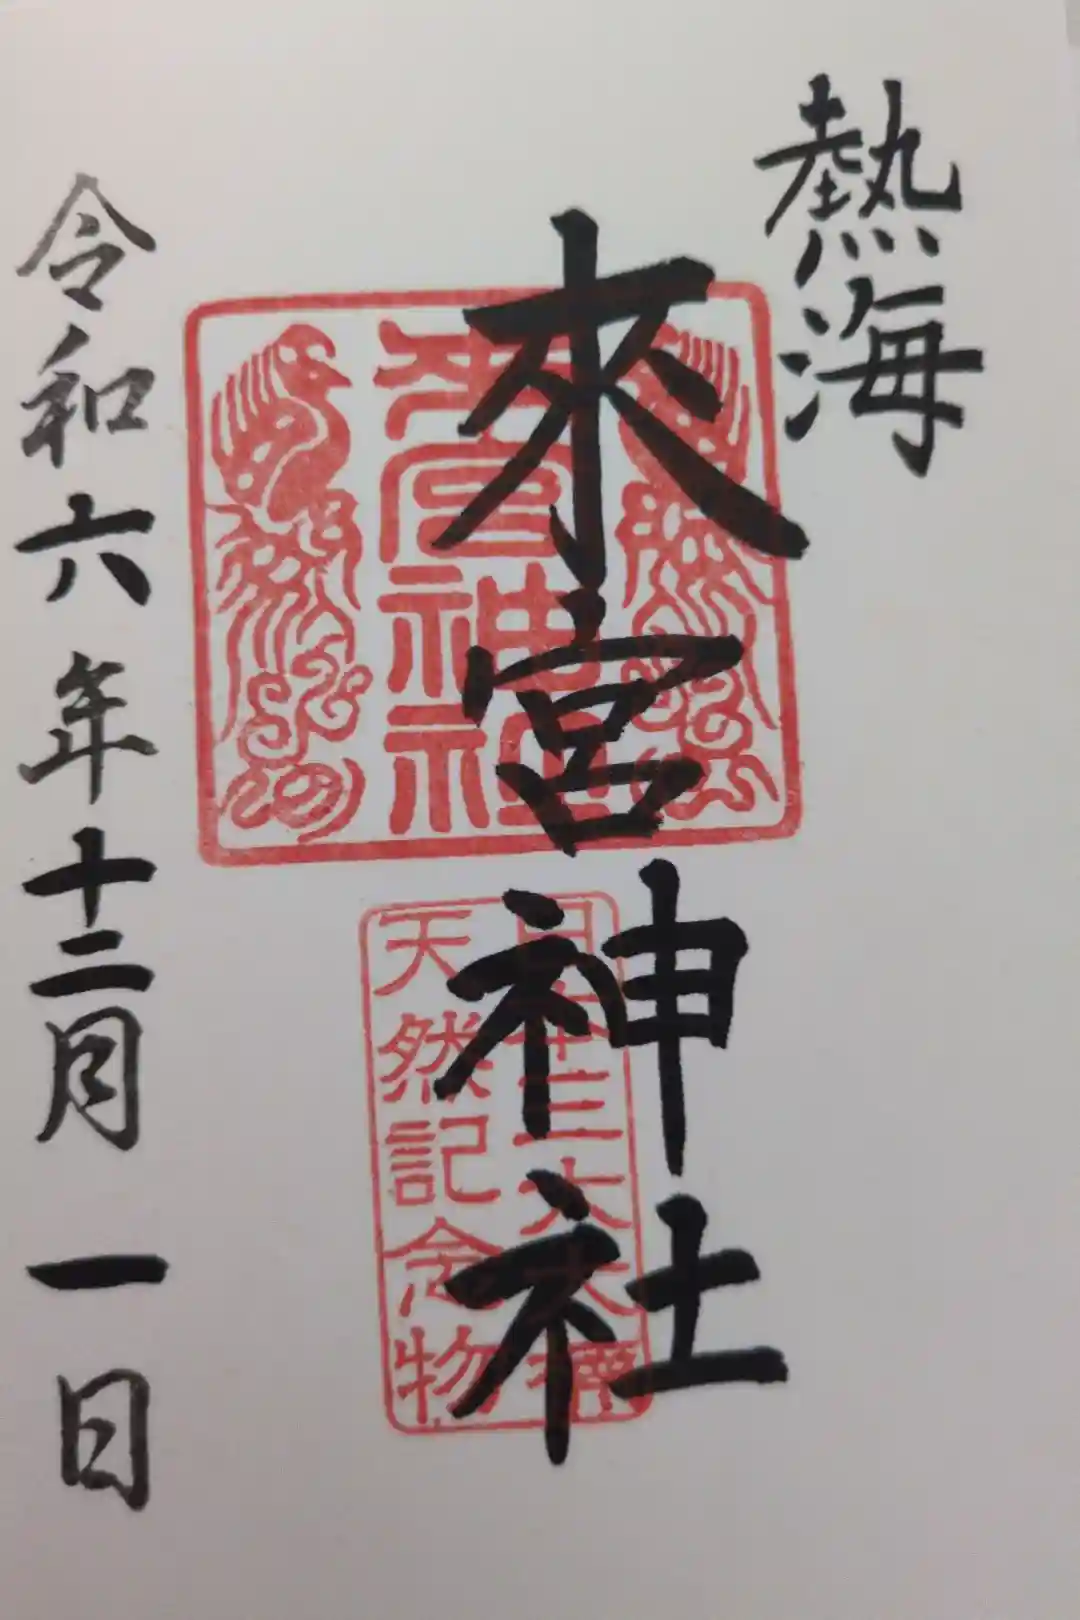 熱海
來宮神社
來宮神社
日本三大大楠
天然記念物
令和六年十二月一日